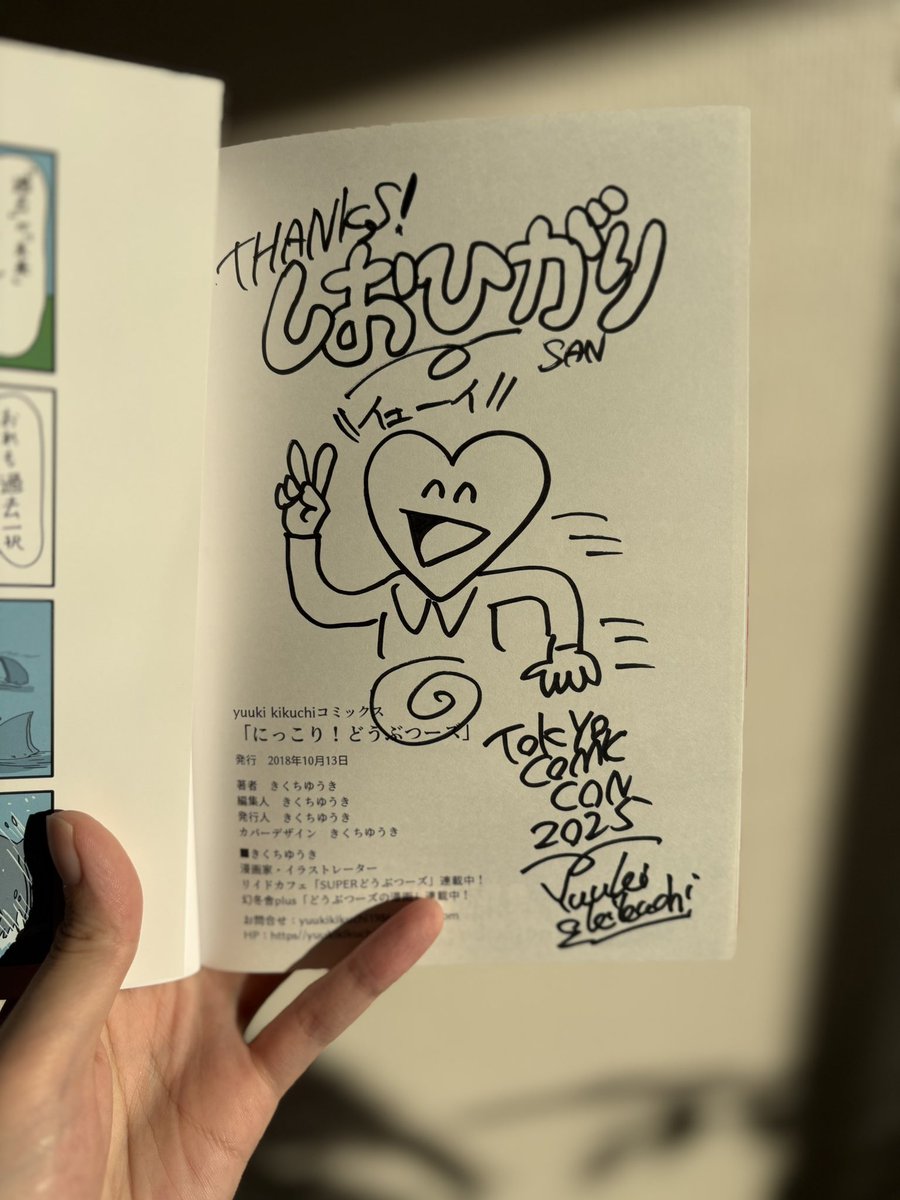 おれも過去一択
THANKS!
しおひがり
SAN
イェーイ
yuuki kikuchiコミックス
「にっこり！どうぶつーズ」
発行　2018年10月13日
著者　きくちゆうき
編集人　きくちゆうき
発行人　きくちゆうき
カバーデザイン　きくちゆうき
■きくちゆうき
漫画家・イラストレーター
リイドカフェ「SUPERどうぶつーズ」連載中！
幻冬舎plus「どうぶつーズの漫画」連載中！
お問合せ：
HP：
TOKYO
COMIC
CON
2025
Yuuki
Kikuchi